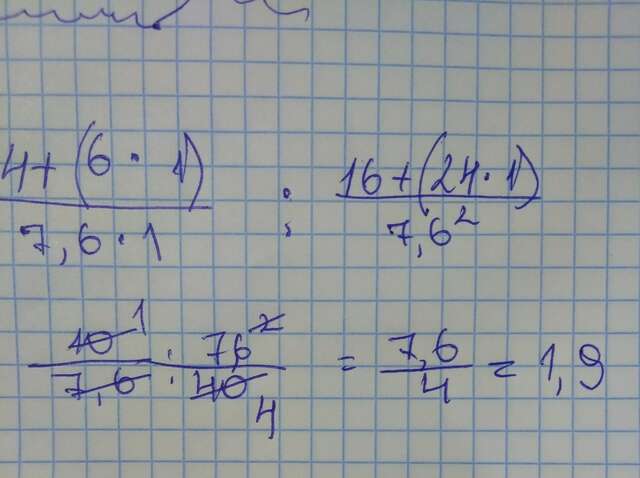 4+(6·1) / 7,6·1 : 16+(24·1) / 7,6²
10 1 / 7,6 : 76² / 40 4 = 7,6 / 4 = 1,9